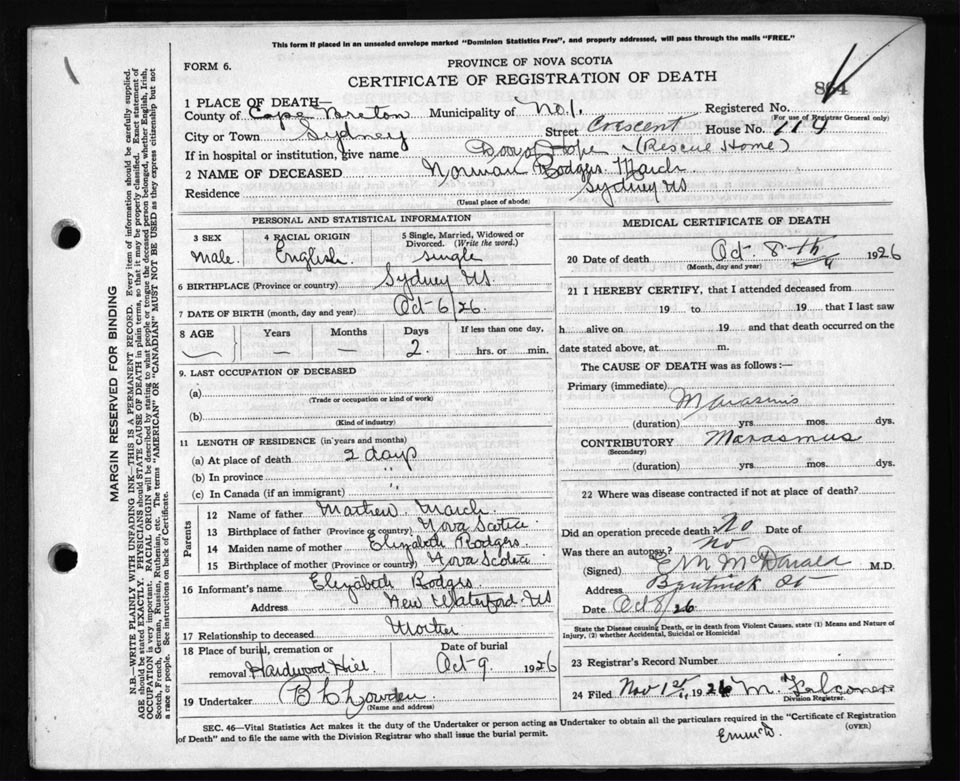 This form if placed in an unsealed envelope marked "Dominion Statistics Free", and properly addressed, will pass through the mails "FREE."
FORM 6.
PROVINCE OF NOVA SCOTIA
CERTIFICATE OF REGISTRATION OF DEATH
864
1 PLACE OF DEATH—
County of Cape Breton Municipality of No. 1. Registered No.
(For use of Registrar General only)
City or Town Sydney Street Crescent House No. 114
If in hospital or institution, give name Door of Hope (Rescue Home)
2 NAME OF DECEASED Norman Rodgers March
Residence Sydney NS
(Usual place of abode)
PERSONAL AND STATISTICAL INFORMATION
3 SEX 4 RACIAL ORIGIN 5 Single, Married, Widowed or Divorced. (Write the word.)
Male. English. Single
6 BIRTHPLACE (Province or country) Sydney NS.
7 DATE OF BIRTH (month, day and year) Oct 6/26.
8 AGE Years Months Days If less than one day,
— — 2. hrs. or min.
9. LAST OCCUPATION OF DECEASED
(a)
(Trade or occupation or kind of work)
(b)
(Kind of industry)
11 LENGTH OF RESIDENCE (in years and months)
(a) At place of death 2 days
(b) In province "
(c) In Canada (if an immigrant) "
Parents
12 Name of father Mathew March
13 Birthplace of father (Province or country) Nova Scotia
14 Maiden name of mother Elizabeth Rodgers
15 Birthplace of mother (Province or country) Nova Scotia
16 Informant's name Elizabeth Rodgers
Address New Waterford NS
17 Relationship to deceased Mother
18 Place of burial, cremation or removal Hardwood Hill Date of burial Oct 9 1926
19 Undertaker
(Name and address)
MEDICAL CERTIFICATE OF DEATH
20 Date of death Oct. 8th 1926
(Month, day and year)
21 I HEREBY CERTIFY, that I attended deceased from
19 to 19 that I last saw
h alive on 19 and that death occurred on the
date stated above, at m.
The CAUSE OF DEATH was as follows:—
Primary (immediate) Marasmus
(duration) yrs. mos. dys.
CONTRIBUTORY Marasmus
(Secondary)
(duration) yrs. mos. dys.
22 Where was disease contracted if not at place of death?
Did an operation precede death? No Date of
Was there an autopsy? No
(Signed) E M McDonald M.D.
Address
Date Oct 8/26
State the Disease causing Death, or in death from Violent Causes, state (1) Means and Nature of Injury, (2) whether Accidental, Suicidal or Homicidal
23 Registrar's Record Number
24 Filed Nov 1st 1926 M. Falconer
Division Registrar.
SEC. 46—Vital Statistics Act makes it the duty of the Undertaker or person acting as Undertaker to obtain all the particulars required in the "Certificate of Registration of Death" and to file the same with the Division Registrar who shall issue the burial permit.
(OVER)
MARGIN RESERVED FOR BINDING
N.B.—WRITE PLAINLY WITH UNFADING INK—THIS IS A PERMANENT RECORD. Every item of information should be carefully supplied.
AGE should be stated EXACTLY. PHYSICIANS should STATE CAUSE OF DEATH in plain terms, so that it may be properly classified. Exact statement of
OCCUPATION is very important. RACIAL ORIGIN will be described by stating to what people or tongue the deceased person belonged, whether English, Irish,
Scotch, French, German, Russian, Ruthenian, etc. The terms "AMERICAN" OR "CANADIAN" MUST NOT BE USED as they express citizenship but not
a race or people. See instructions on back of Certificate.